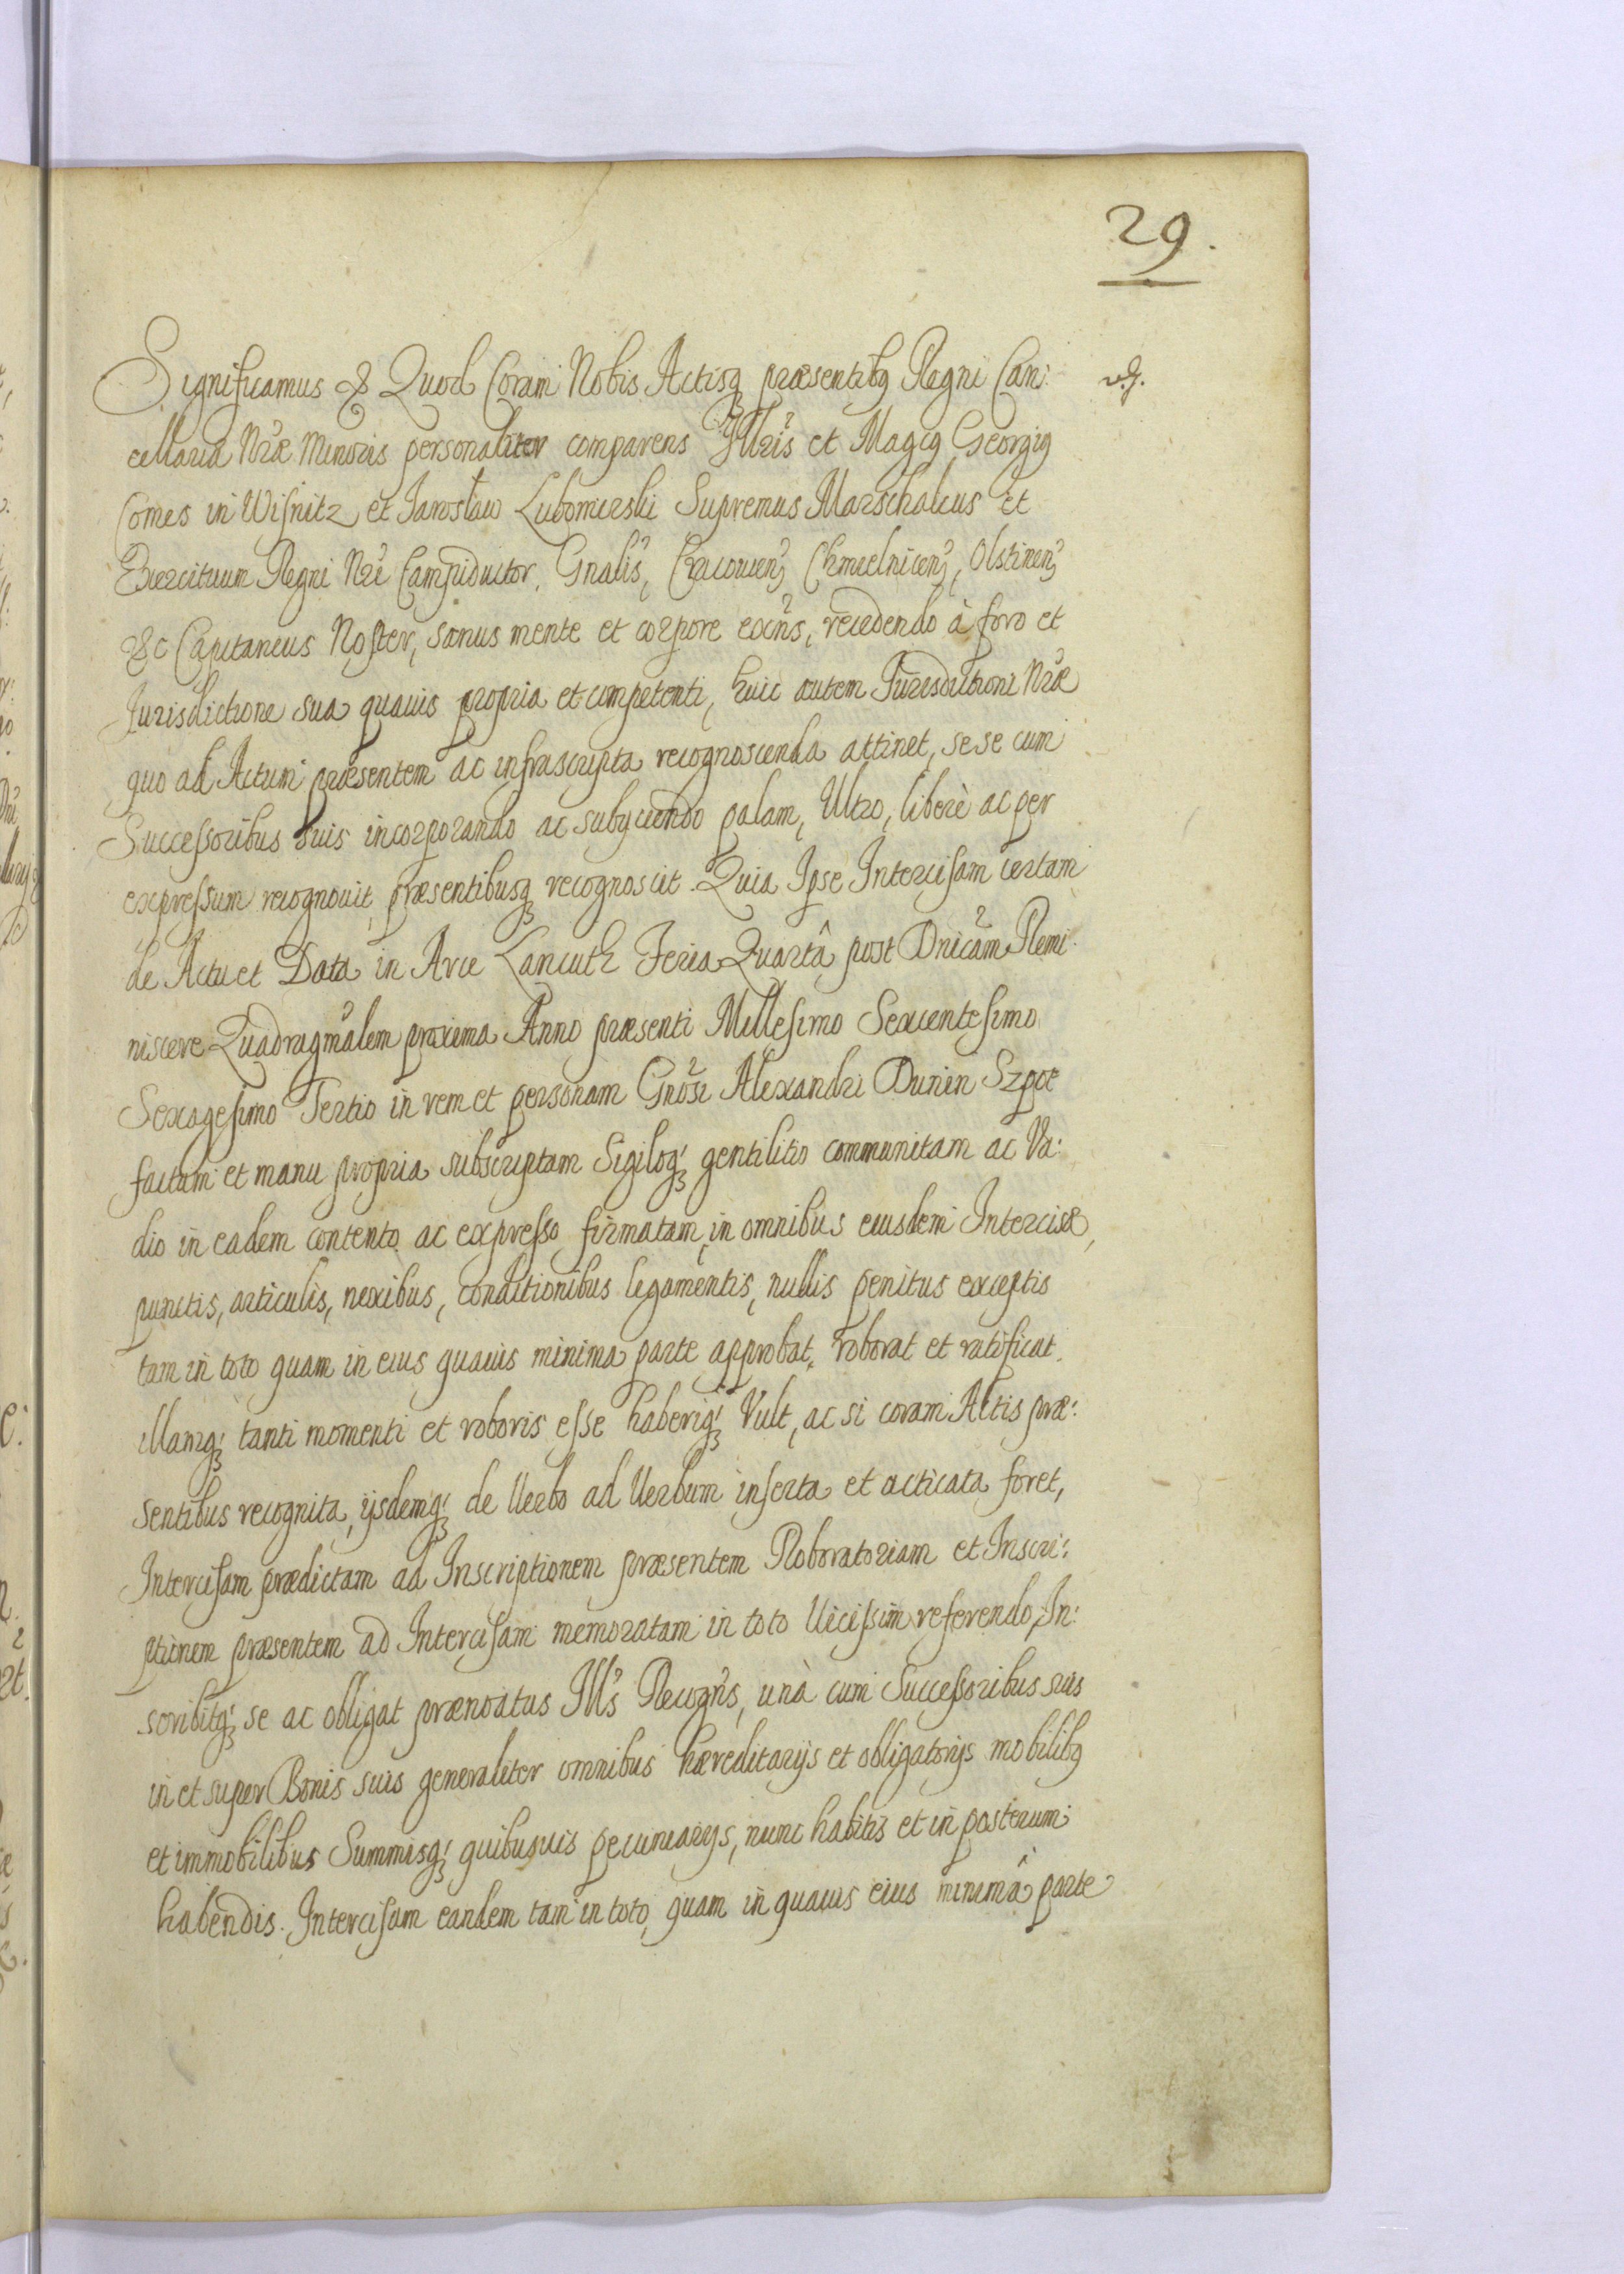 29.
Significamus &c Quod Coram Nobis Actisq præsentibq Regni Can:
cellaria Nræ Minoris personaliter comparens Illris et Magcq Georgiq
Comes in Wisnitz et Jarosław Lubomirski Supremus Marschalcus et
Exercituum Regni Nri Campiductor, Gnalis, Cracouien, Chmielnicen, Olstinen
&c Capitaneus Noster, sanus mente et corpore exns, recedendo à foro et
Jurisdictione sua quauis propria et competenti, huic autem Jurisdictioni Nræ
quo ad Actum præsentem ac infrascripta recognoscenda attinet, sese cum
Successoribus suis incorporando ac subyciendo palam, Ultro, liberè ac per
expressum recognouit, præsentibusq recognoscit. Quia Ipse Intercisam certam
de Actu et Data in Arce Lancuth Feria Quartâ post Dnicam Remi:
niscere Quadragmalem proxima Anno præsenti Millesimo Sexcentesimo
Sexagesimo Tertio in rem et personam Gnosi Alexandri Dunin Szpot
factam et manu propria subscriptam Sigiloq gentilitio communitam ac Va:
dio in eadem contento ac expresso firmatam, in omnibus eiusdem Intercisæ,
punctis, articulis, nexibus, conditionibus legamentis, nullis penitus exceptis
tam in toto quam in eius quauis minima parte approbat, roborat et ratificat.
illamq tanti momenti et roboris esse haberiq Vult, ac si coram Actis præ:
sentibus recognita, ijsdemq de Uerbo ad Uerbum inserta et acticata foret,
Intercisam prædictam ad Inscriptionem præsentem Roboratoriam et Inscri:
ptionem præsentem ad Intercisam memoratam in toto Uicissim referendo, In:
scribitq se ac obligat prænotatus Ills Recogns, unà cum Successoribus suis
in et super Bonis suis generaliter omnibus hæreditarijs et obligatorijs mobilibq
et immobilibus Summisq quibusuis pecuniarijs, nunc habitis et in posterum
habendis. Intercisam eandem tam in toto, quam in quauis eius minimâ parte